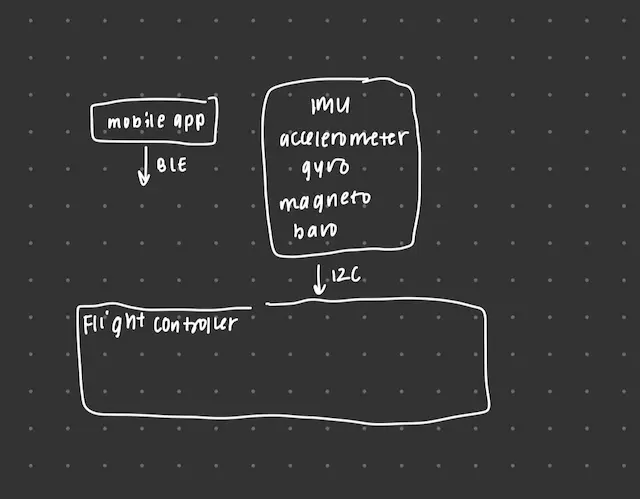 mobile app
BLE
IMU
accelerometer
gyro
magneto
baro
I2C
Flight controller